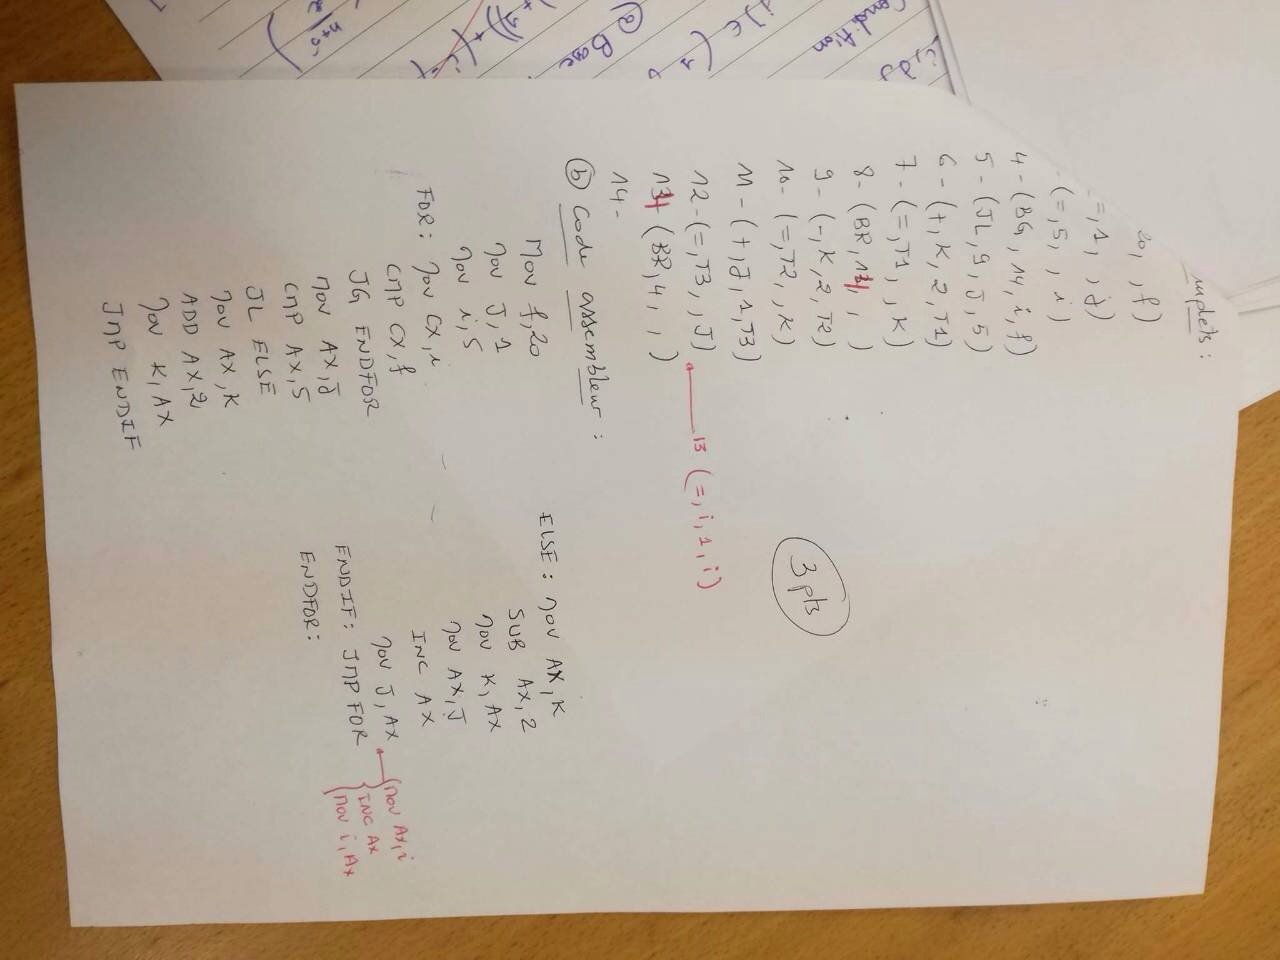 mplets :
20, , f)
=, 1, , j)
(=, 5, , i)
4 - (BG, 14, i, f)
5 - (JL, 9, J, 5)
6 - (+, K, 2, T1)
7 - (=, T1, , K)
8 - (BR, , )
9 - (-, K, 2, T2)
10 - (=, T2, , K)
11 - (+, J, 1, T3)
12 - (=, T3, , J)
13 (=, i, 1, i)
(BR, 4, , )
14 -
3 pts
ⓑ Code assembleur :
Mov f, 20
Mov J, 1
Mov i, 5
FOR : Mov CX, i
CMP CX, f
JG ENDFOR
Mov AX, J
CMP AX, 5
JL ELSE
Mov AX, K
ADD AX, 2
Mov K, AX
JMP ENDIF
ELSE : Mov AX, K
SUB AX, 2
Mov K, AX
Mov AX, J
INC AX
Mov J, AX
Mov AX, i
INC AX
Mov i, AX
ENDIF : JMP FOR
ENDFOR :
Condition
ⓐ Base